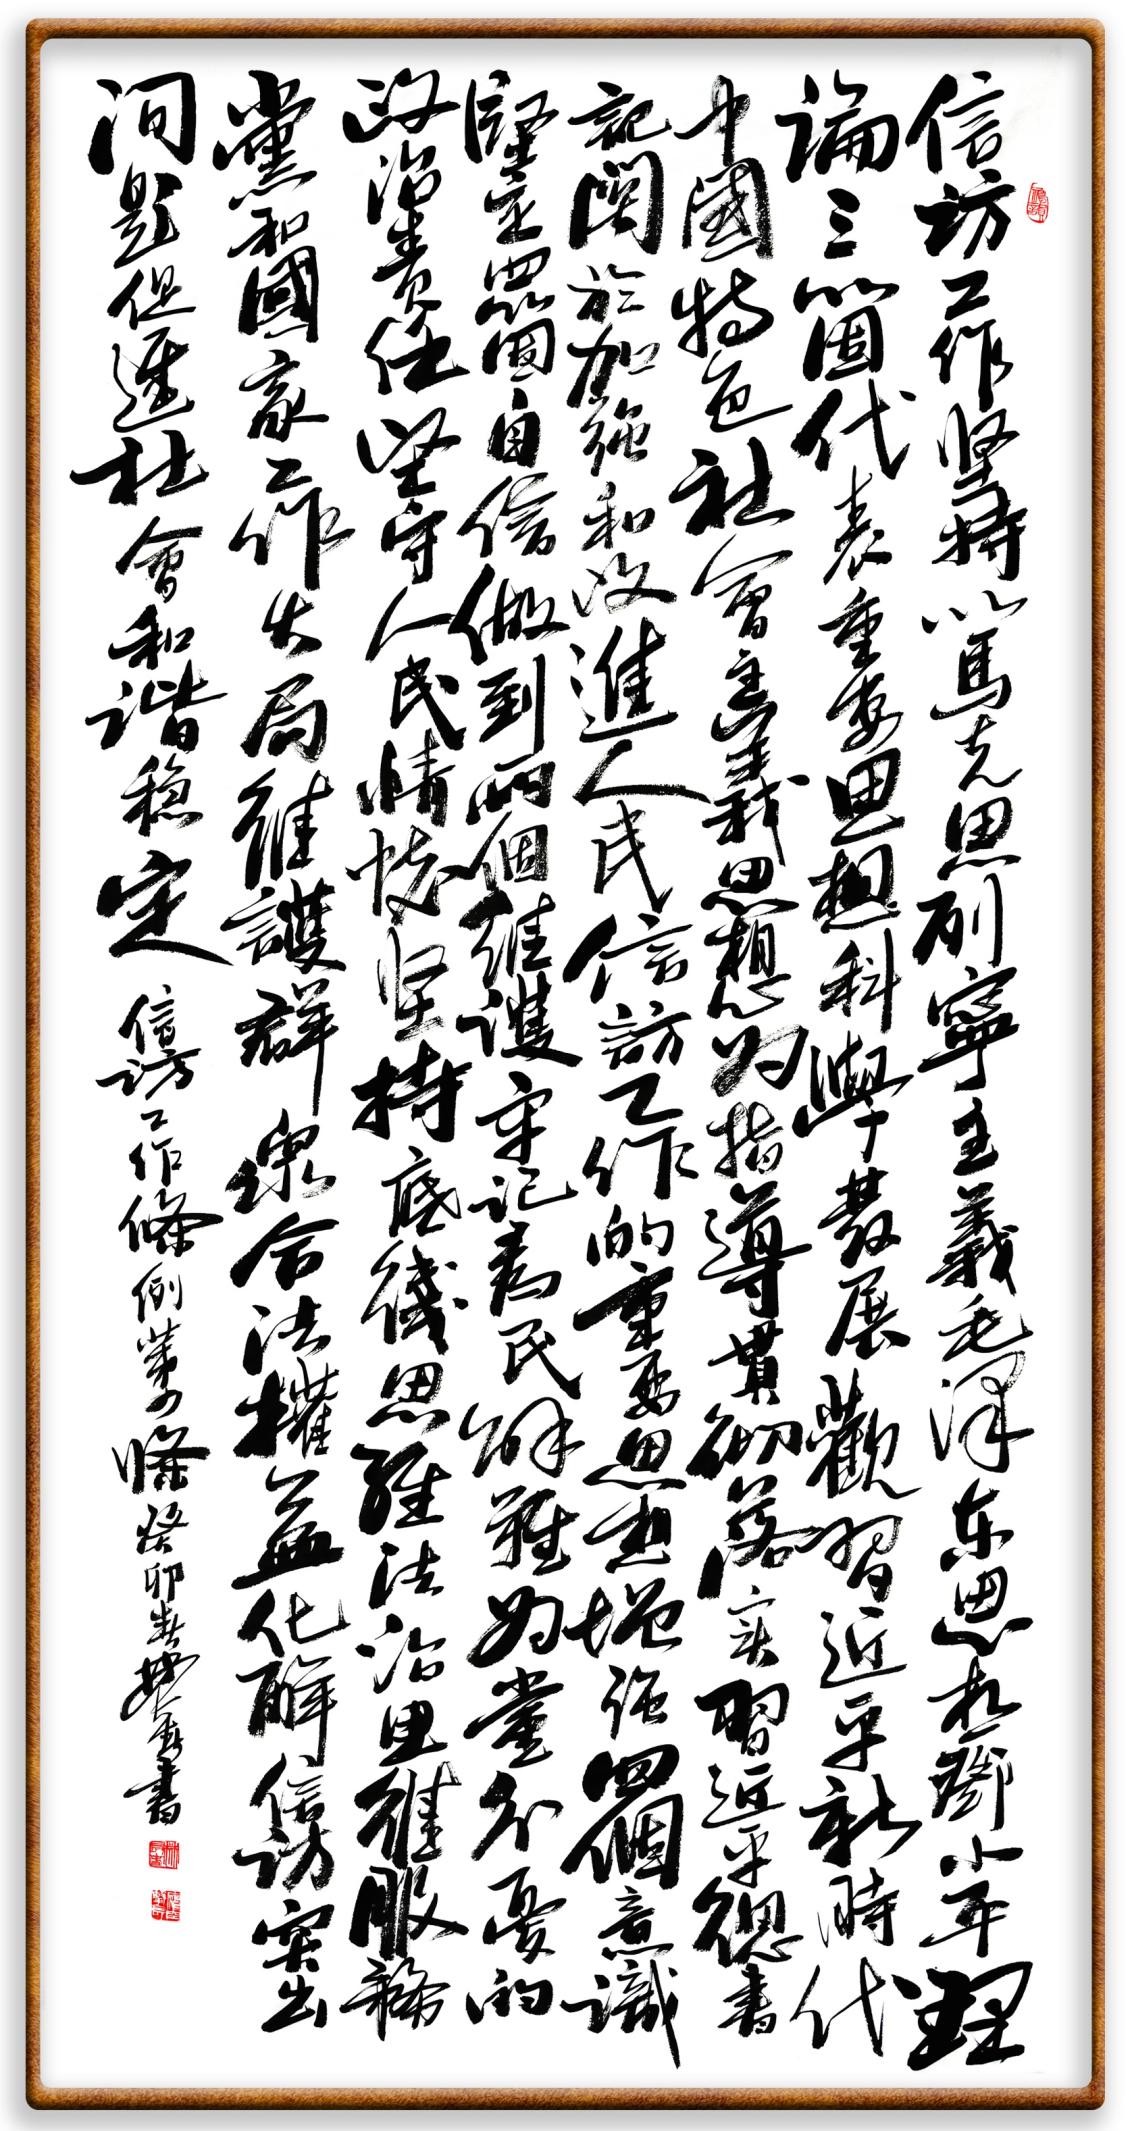 信訪工作坚持以馬克思列寧主義毛泽东思想鄧小平理
論三箇代表重要思想科學發展觀習近平新時代
中國特色社會主義思想为指導貫彻落实習近平總書
記関於加強和改進人民信訪工作的重要思想增强四個意識
堅定四箇自信做到兩個維護牢记為民解難为黨分憂的
政治責任坚守人民情懷坚持底綫思維法治思維服務
黨和國家工作大局維護群众合法權益化解信访突出
问题促進社會和谐稳定
信访工作條例第四條癸卯 書